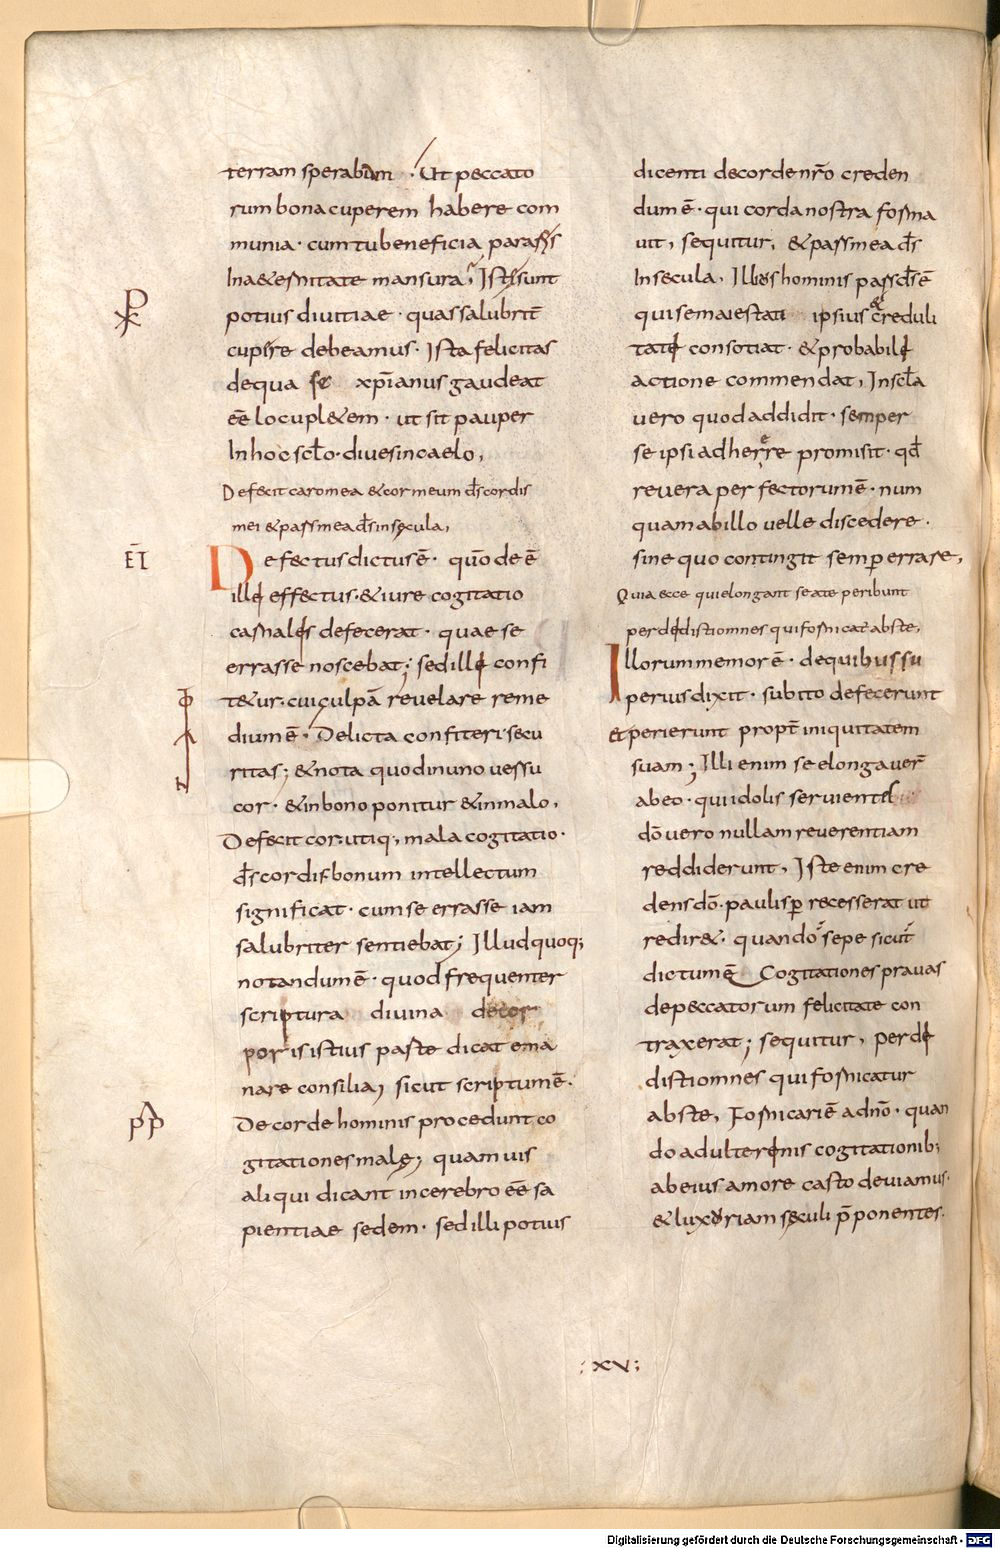 terram sperabam · Ut peccato
rum bona cuperem habere com
munia · cum tu beneficia parasses
In aeternitate mansura; Ista sunt
potius divitiae · quas salubrit̄
cupire debeamus · Ista felicitas
de qua se xp̄ianus gaudeat
ēē locupl&em · ut sit pauper
In hoc sclo · dives in caelo,
Defecit caro mea & cor meum ds cordis
mei & pars mea ds in sęcula,
Defectus dictus ē · quō de ē
ille effectus · & iure cogitatio
carnales defecerat · quae se
errasse noscebat; sed ille confi
t&ur · cui culpā revelare reme
dium ē · Delicta confiteri secu
ritas; & nota quod in uno uessu
cor · & in bono ponitur & in malo,
Defecit cor utiq;, mala cogitatio ·
ds cordis bonum intellectum
significat · cum se errasse iam
salubriter sentiebat; Illud quoq;
notandum ē · quod frequenter
scriptura divina de cor
poris istius parte dicat ema
nare consilia, sicut scriptum ē ·
De corde hominis procedunt co
gitationes malę; quamuis
aliqui dicant in cerebro ēē sa
pientiae sedem · sed illi potius
dicenti de corde nr̄o creden
dum ē · qui corda nostra forma
uit, sequitur, & pars mea ds
In secula, hominis pars ds ē
qui se maiestati ipsius & creduli
tate consotiat · & probabile
actione commendat, In scla
vero quod addidit · semper
se ipsi adherere promisit · qd
revera perfectorum ē · num
quam ab illo uelle discedere ·
sine quo contingit semp errare,
Quia ecce qui elongant se a te peribunt
perdedisti omnes qui fornicat abs te,
Illorum memor ē · de quibus su
perus dixit · subito defecerunt
et perierunt propt̄ iniquitatem
suam; Illi enim se elongauer̄
ab eo · qui idolis servientes
dō vero nullam reverentiam
reddiderunt, Iste enim cre
dens dō · paulisp recesserat ut
redir& · quando sepe sicut
dictum ē Cogitationes pravas
de peccatorum felicitate con
traxerat; sequitur, perde
disti omnes qui fornicatur
abs te, Fornicari ē a dn̄o · quan
do adulterinis cogitationib;
ab eius amore casto deviamus ·
& luxuriam sęculi p̄ponentes.
: XV :
Digitalisierung gefördert durch die Deutsche Forschungsgemeinschaft - DFG